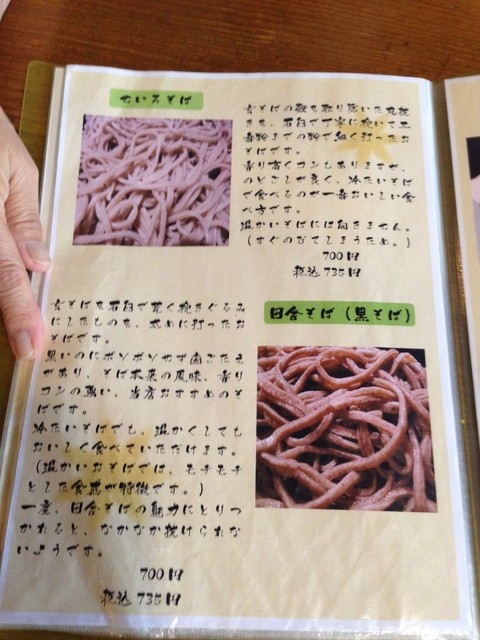 せいろそば
玄そばの殻を取り除いた丸抜
きを、石臼で丁寧に挽いて二
番粉までの粉で細く打ったお
そばです。
香り高くコシもありますが、
のどごしが良く、冷たいそば
で食べるのが一番おいしい食
べ方です。
温かいそばには向きません。
(すぐのびてしまうため。)
700円
税込 735円
田舎そば(黒そば)
玄そばを石臼で荒く挽きぐるみ
にしたものを、太めに打ったお
そばです。
黒いのにボソボソせず歯ごたえ
があり、そば本来の風味、香り
コシの強い、当店おすすめのそ
ばです。
冷たいそばでも、温かくしても
おいしく食べていただけます。
(温かいおそばでは、モチモチ
とした食感が特徴です。)
一度、田舎そばの魅力にとりつ
かれると、なかなか抜けられな
いようです。
700円
税込 735円